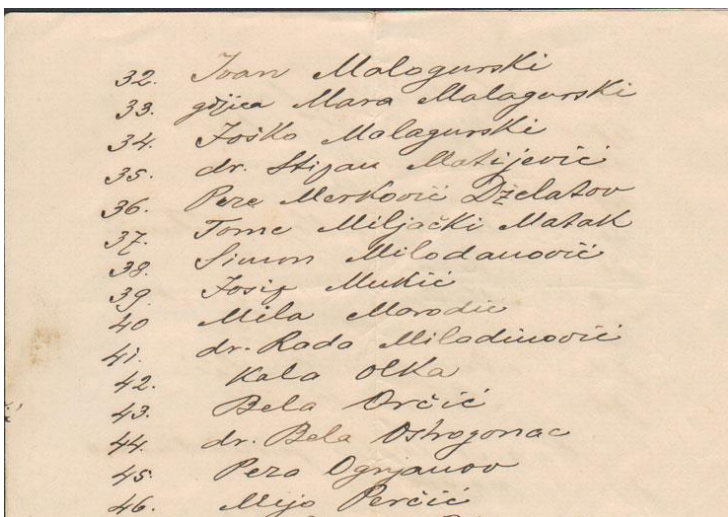 32. Ivan Malogurski
33. gđjica Mara Malagurski
34. Joško Malagurski
35. dr. Stipan Matijević
36. Pere Merković Dželatov
37. Tome Miljački Matak
38. Simon Milodanović
39. Josip Mukić
40 Mila Marodić
41. dr. Rada Miladinović
42. Kala Olka
43. Bela Orčić
44. dr. Bela Ostrogonac
45. Pera Ognjanov
46. Mijo Perčić